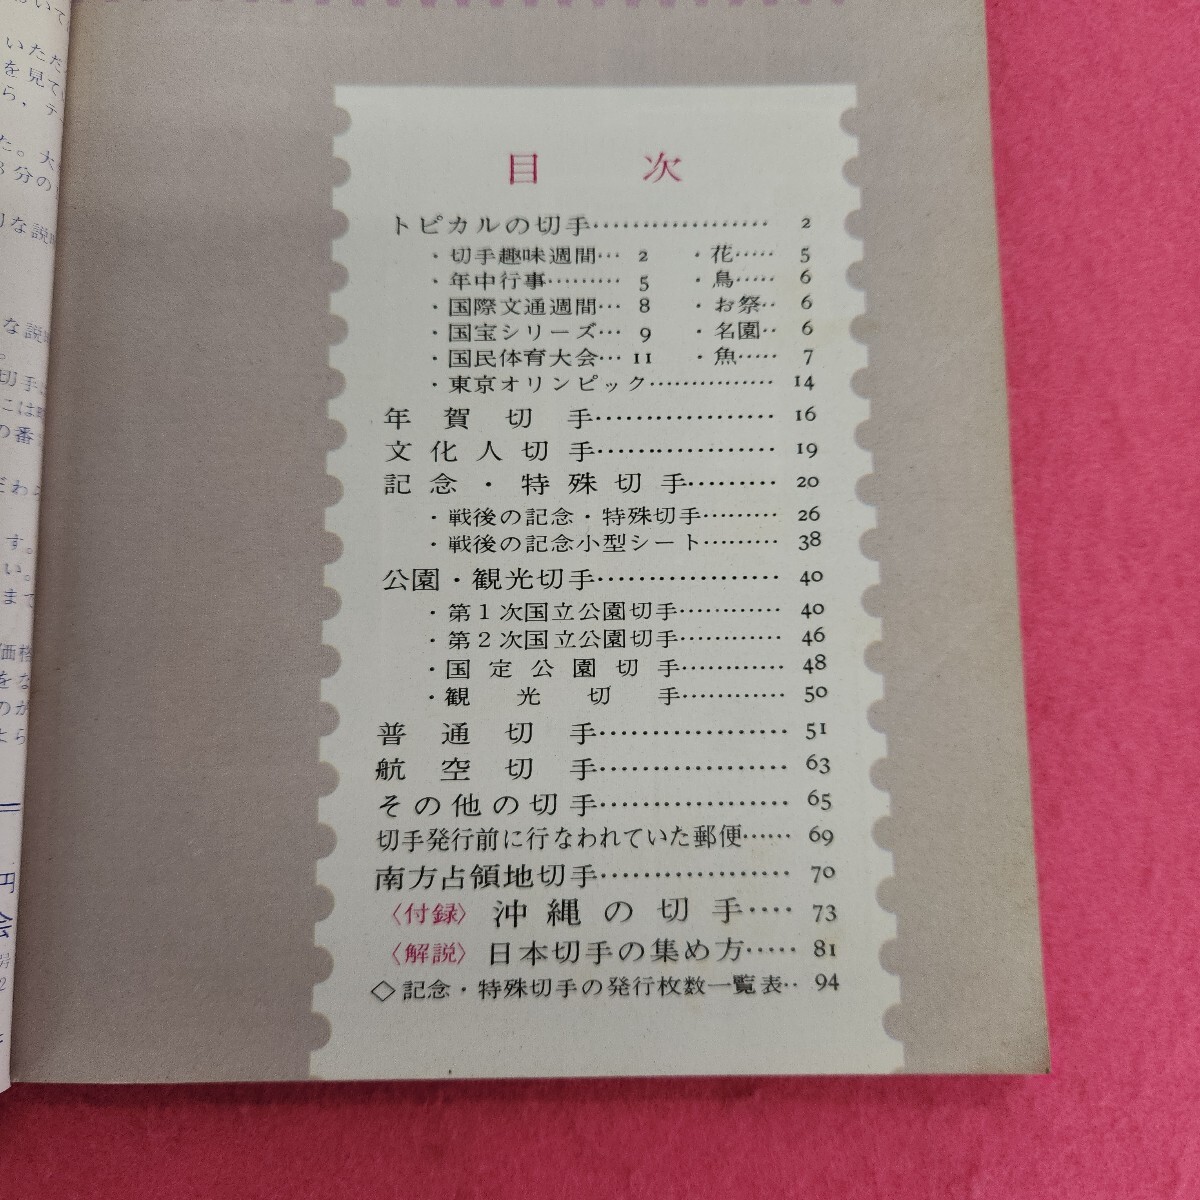 目次
トピカルの切手……………… 2
・切手趣味週間… 2 ・花…… 5
・年中行事……… 5 ・鳥…… 6
・国際文通週間… 8 ・お祭‥ 6
・国宝シリーズ… 9 ・名園‥ 6
・国民体育大会… 11 ・魚…… 7
・東京オリンピック…………… 14
年賀切手……………… 16
文化人切手……………… 19
記念・特殊切手……… 20
・戦後の記念・特殊切手……… 26
・戦後の記念小型シート……… 38
公園・観光切手……………… 40
・第1次国立公園切手………… 40
・第2次国立公園切手………… 46
・国定公園切手………… 48
・観光切手………… 50
普通切手……………… 51
航空切手……………… 63
その他の切手……………… 65
切手発行前に行なわれていた郵便…… 69
南方占領地切手……………… 70
〈付録〉 沖縄の切手…‥ 73
〈解説〉 日本切手の集め方…… 81
◇記念・特殊切手の発行枚数一覧表‥ 94
いただ
を見て
ら，テ
た。大
3分の
りな説明
な説明
。
切手
こは
の番
だわら
す。
い。
まで
価格
をな
のか
よら
円
会